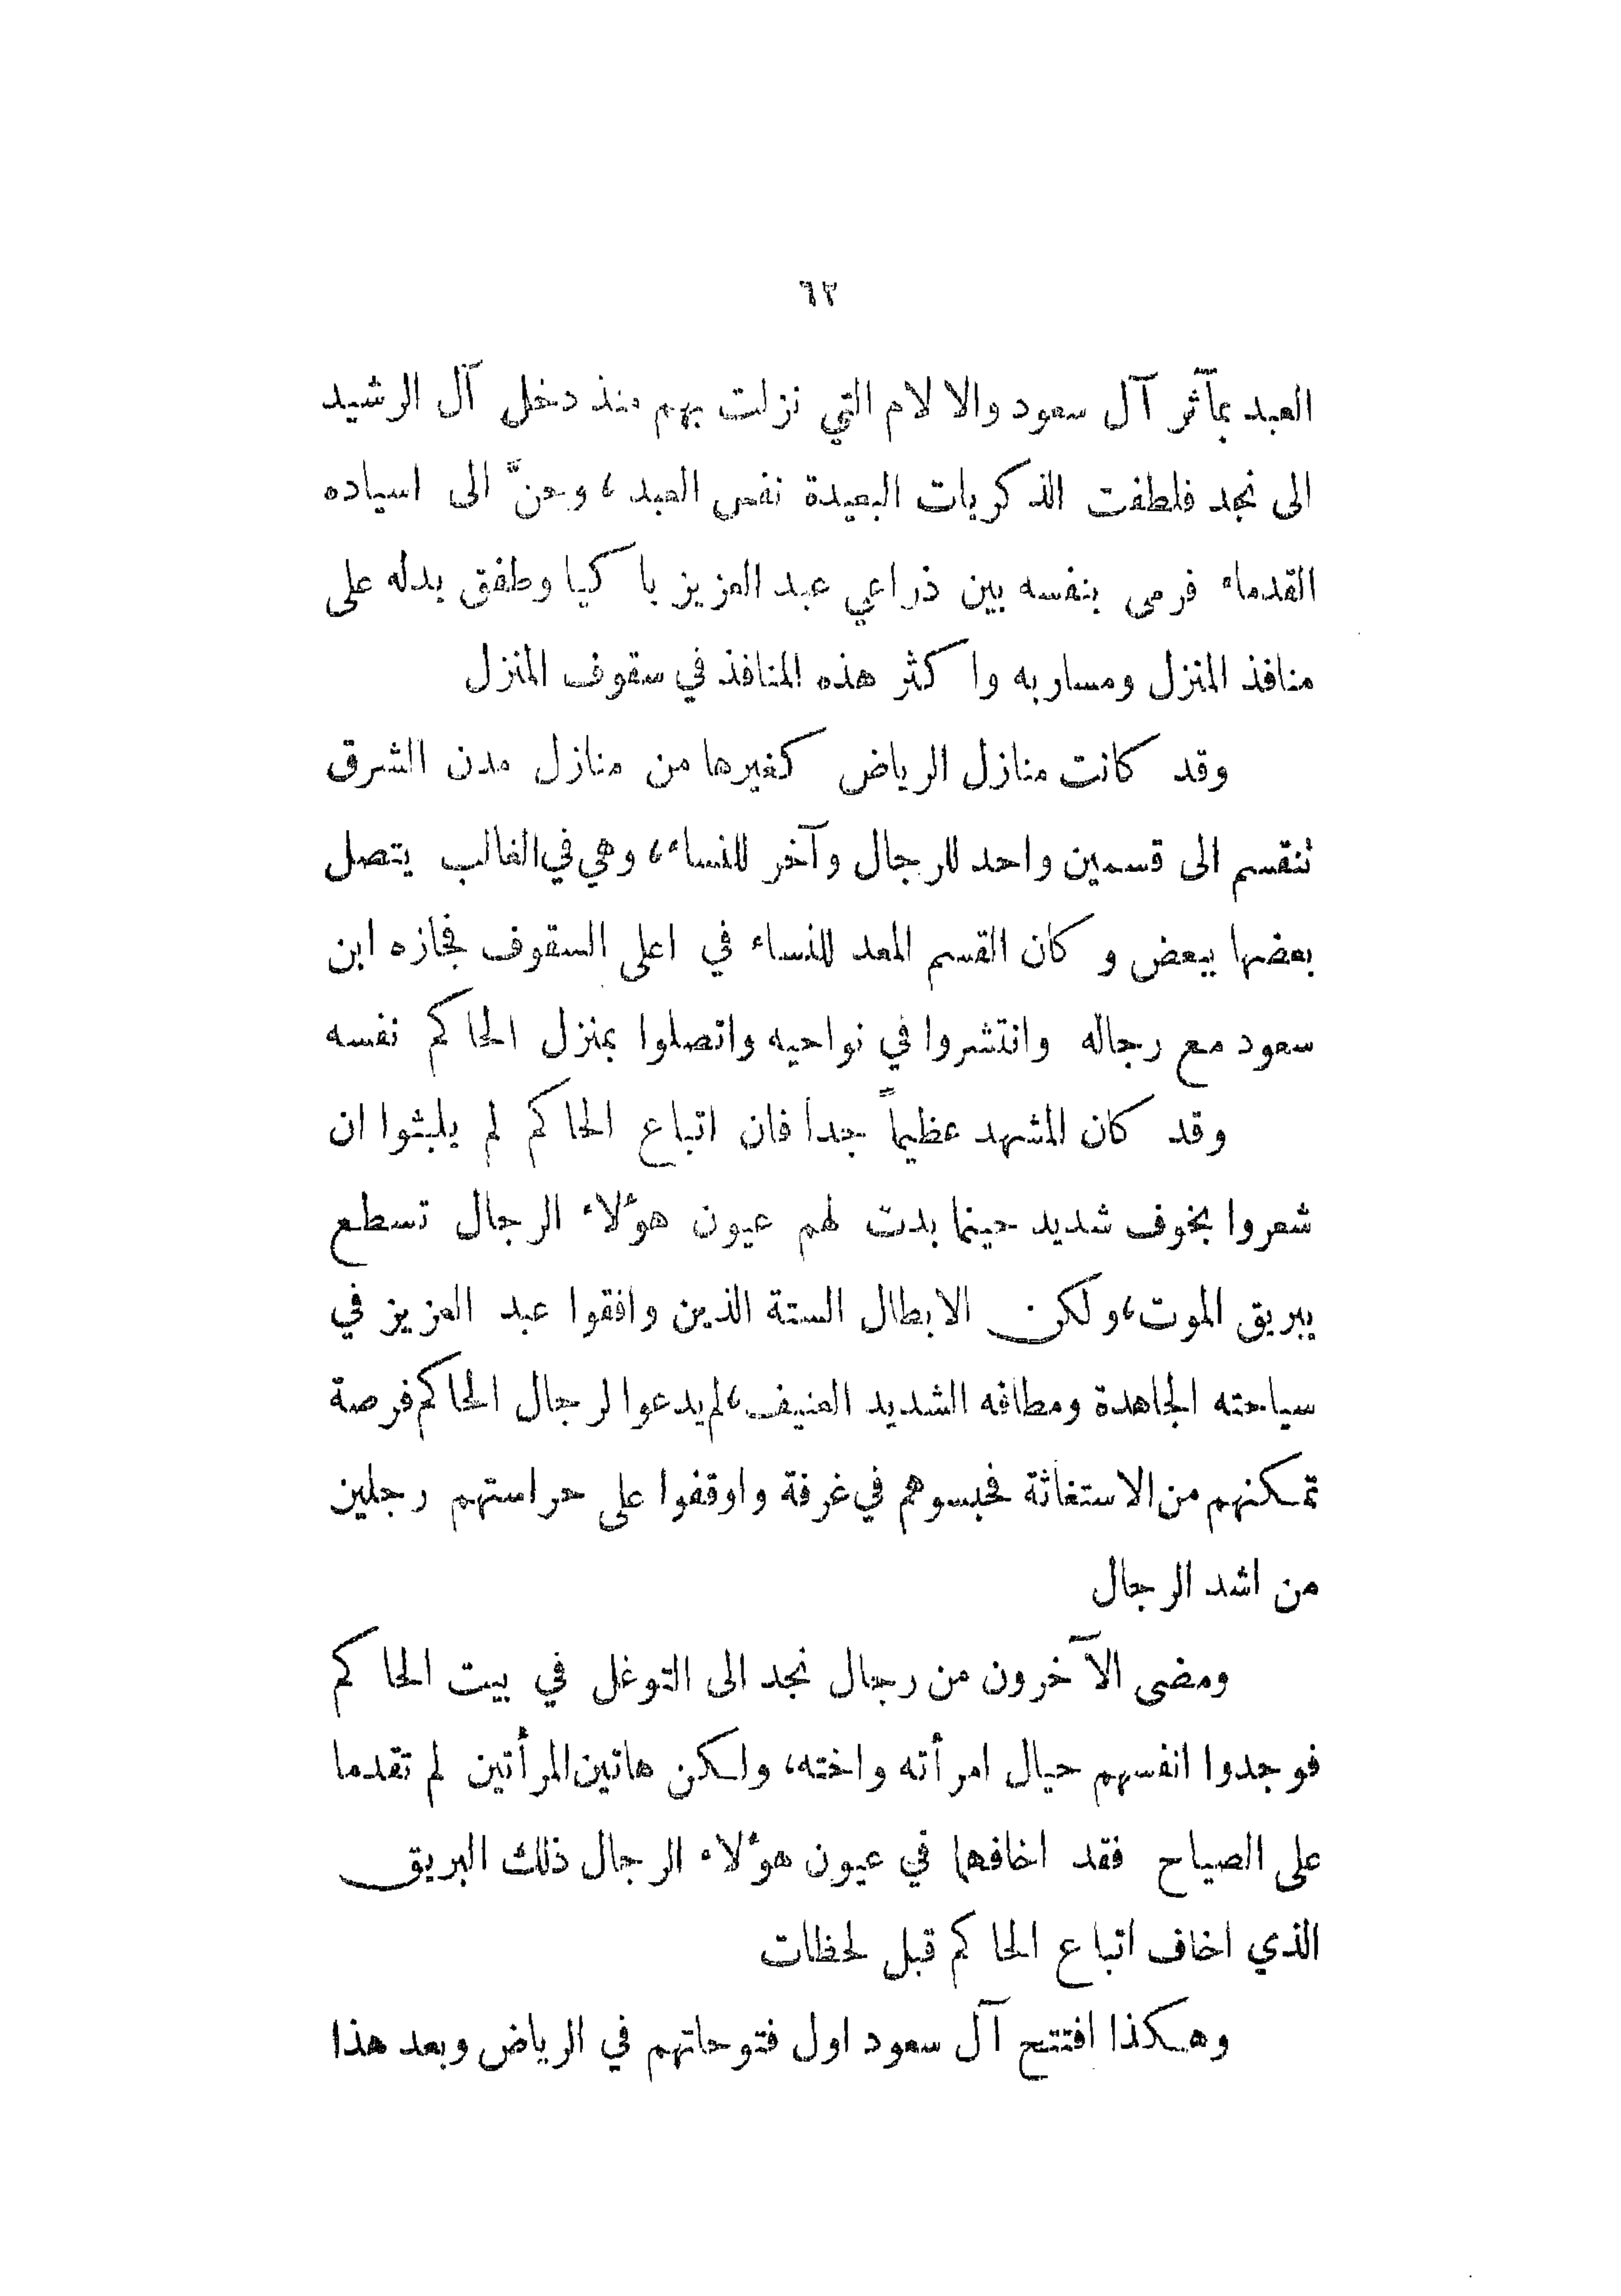 ٦٢
العبد بمآثر آل سعود والالام التي نزلت بهم منذ دخل آل الرشيد
الى نجد فلطفت الذكريات البعيدة نفس العبد، وحنّ الى اسياده
القدماء فرمى بنفسه بين ذراعي عبد العزيز باكيا وطفق يدله على
منافذ المنزل ومساربه واكثر هذه المنافذ في سقوف المنزل
وقد كانت منازل الرياض كغيرها من منازل مدن الشرق
تنقسم الى قسمين واحد للرجال وآخر للنساء، وهي في الغالب يتصل
بعضها ببعض وكان القسم المعد للنساء في اعلى السقوف فجازه ابن
سعود مع رجاله وانتشروا في نواحيه واتصلوا بمنزل الحاكم نفسه
وقد كان المشهد عظيماً جداً فان اتباع الحاكم لم يلبثوا ان
شعروا بخوف شديد حينما بدت لهم عيون هؤلاء الرجال تسطع
ببريق الموت، ولكن الابطال الستة الذين وافقوا عبد العزيز في
سياحته الجاهدة ومطافه الشديد العنيف، لم يدعوا لرجال الحاكم فرصة
تمكنهم من الاستغاثة فحبسوهم في غرفة واوقفوا على حراستهم رجلين
من اشد الرجال
ومضى الآخرون من رجال نجد الى التوغل في بيت الحاكم
فوجدوا انفسهم حيال امرأته واخته، ولكن هاتين المرأتين لم تقدما
على الصياح فقد اخافهما في عيون هؤلاء الرجال ذلك البريق
الذي اخاف اتباع الحاكم قبل لحظات
وهكذا افتتح آل سعود اول فتوحاتهم في الرياض وبعد هذا